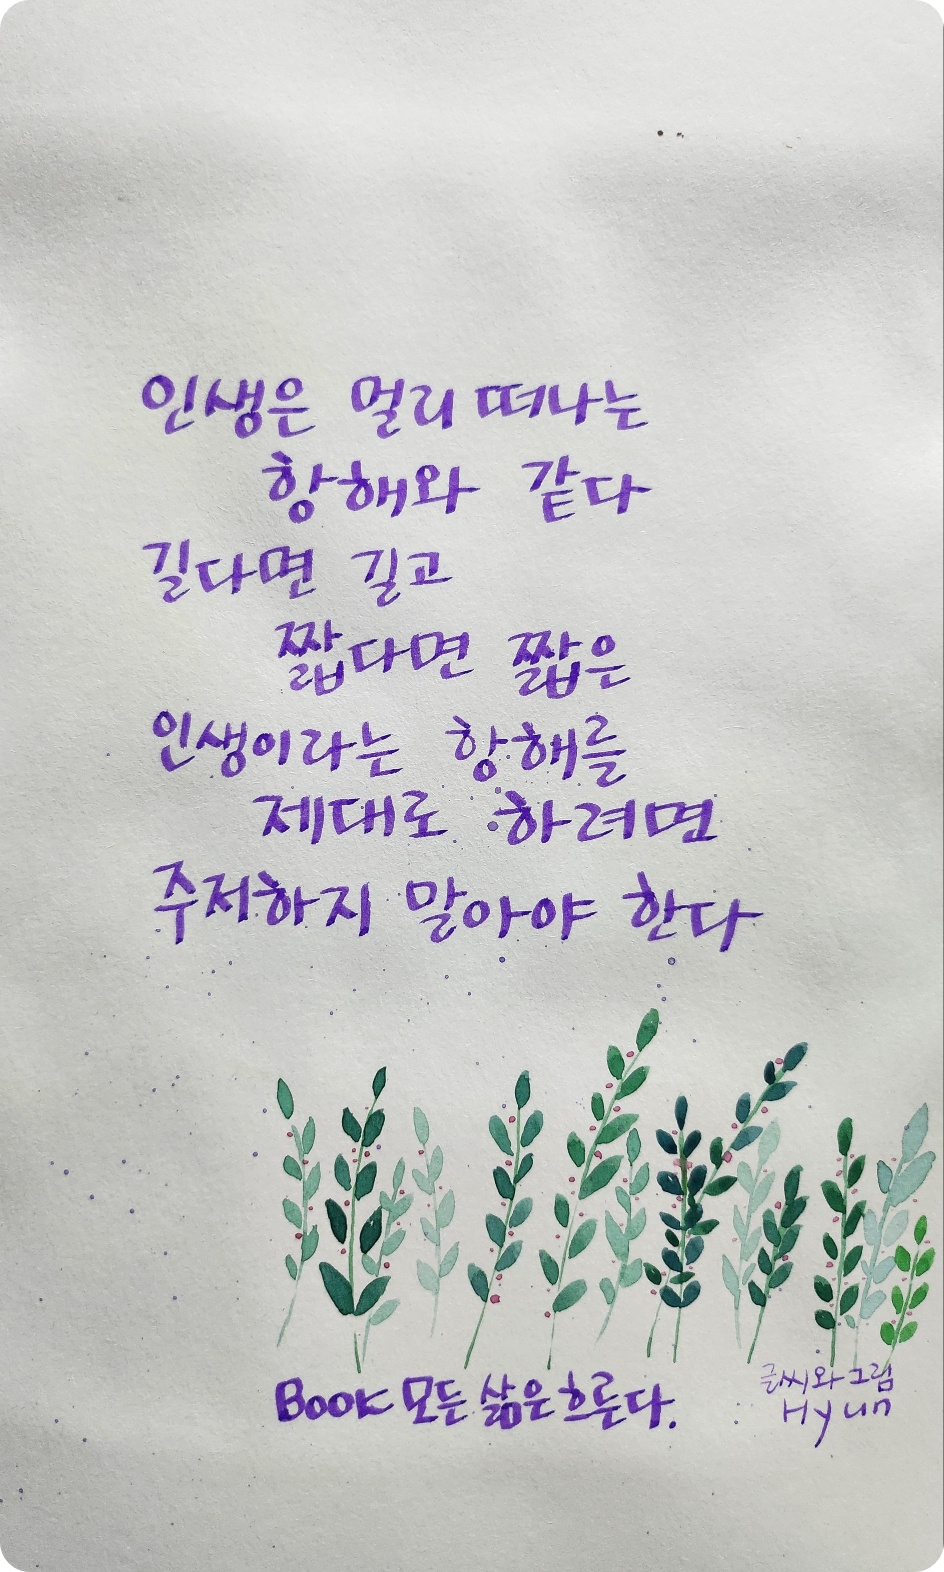 인생은 멀리 떠나는
항해와 같다
길다면 길고
짧다면 짧은
인생이라는 항해를
제대로 하려면
주저하지 말아야 한다
Book 모든 삶은 흐른다.
글씨와 그림
Hyun